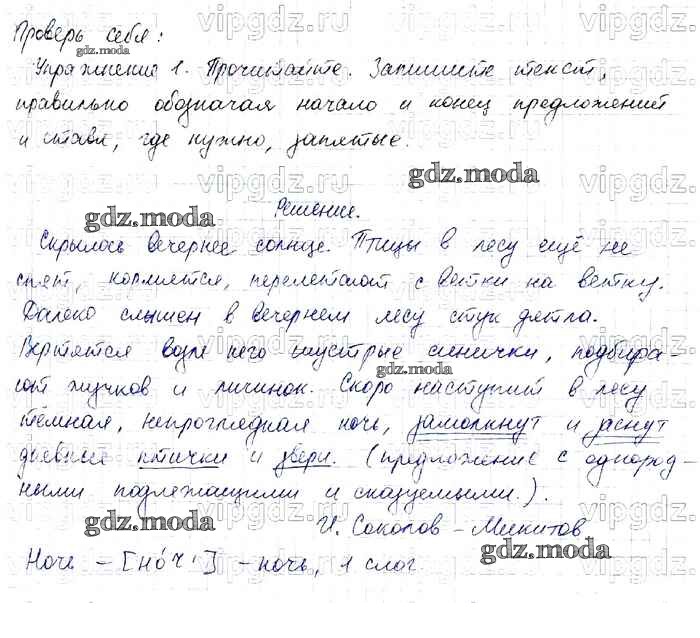 Проверь себя:
Упражнение 1. Прочитайте. Запишите текст,
правильно обозначая начало и конец предложений
и ставя, где нужно, запятые.
Решение.
Скрылось вечернее солнце. Птицы в лесу ещё не
спят, кормятся, перелетают с ветки на ветку.
Далеко слышен в вечернем лесу стук дятла.
Вертятся возле него шустрые синички, подбира-
ют жучков и личинок. Скоро наступит в лесу
тёмная, непроглядная ночь, замолкнут и заснут
дневные птички и звери. (предложение с однород-
ными подлежащими и сказуемыми.).
И. Соколов – Микитов
Ночь – [но́ч'] – ночь, 1 слог.
vipgdz.ru
gdz.moda